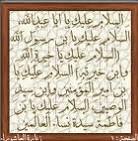 السلام عليك يا أبا عبد الله
السلام عليك يا بن رسول الله
السلام عليك يا بن خيرة الله
وابن خيرته السلام عليك يا
بن أمير المؤمنين وابن سيد
الوصيين السلام عليك يا بن
فاطمة سيدة نساء العالمين